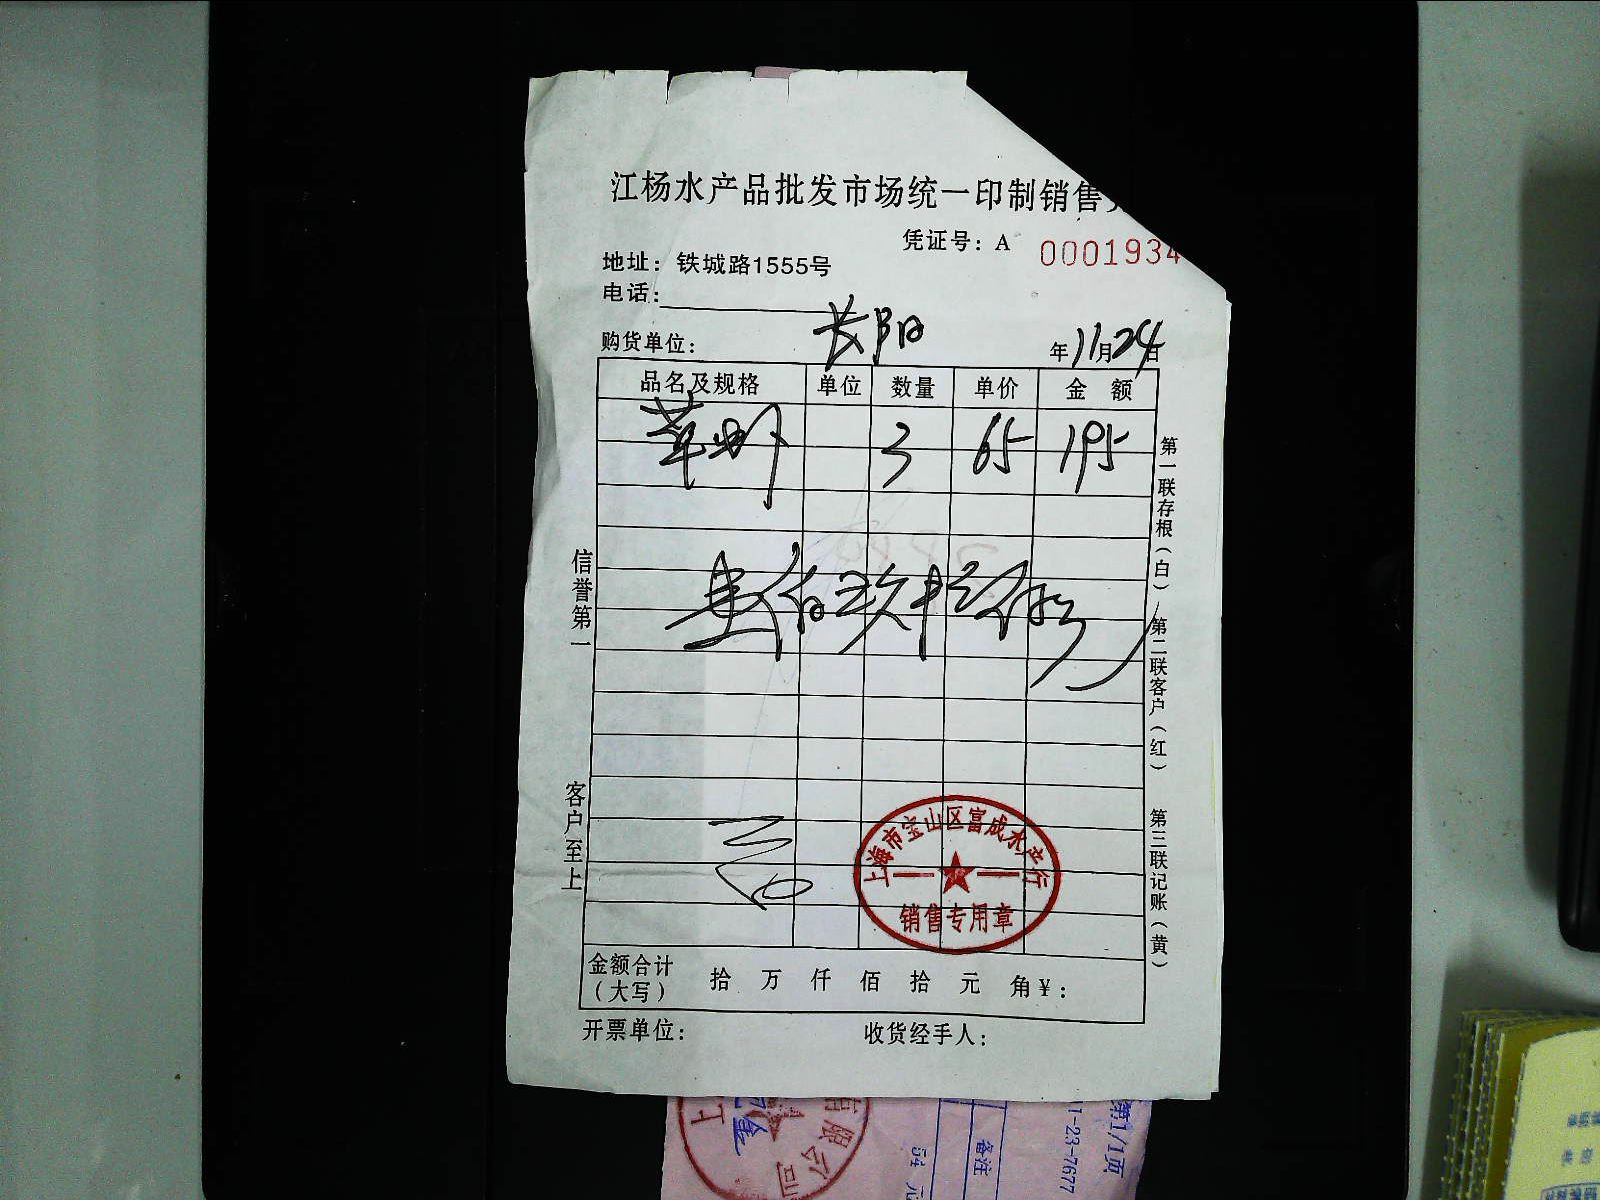 江杨水产品批发市场统一印制销售
凭证号：A 0001934
地址：铁城路1555号
电话：
购货单位：长阳 年11月24日
品名及规格 单位 数量 单价 金额
草虾 3 65 195
壹佰玖拾伍
信誉第一
客户至上
第一联存根（白） 第二联客户（红） 第三联记账（黄）
上海市宝山区富成水产行
销售专用章
金额合计（大写） 拾 万 仟 佰 拾 元 角 ¥：
开票单位： 收货经手人：
限公司
备注
54 元
第1/1页
1-23-7677